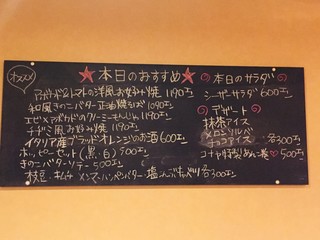 オススメ
★本日のおすすめ★
アボカド&トマトの洋風お好み焼 1190円
和風きのこバター正油焼そば 1090円
エビ×アボカドのクリーミーもんじゃ 1190円
チヂミ風お好み焼 1190円
イタリア産ブラッドオレンジのお酒 600円
ホッピーセット(黒・白) 500円
きのこバターソテー 500円
枝豆・キムチ メンマ バター・塩 各300円
本日のサラダ
シーザーサラダ 600円
デザート
抹茶アイス
メロンソルベ
チョコアイス
各300円
コナヤ特製あんこ巻 500円